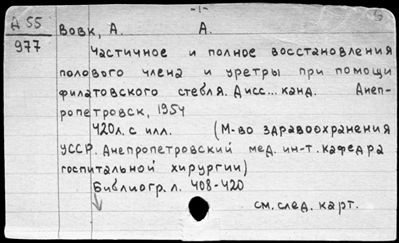 -1-
Д 55
977
Вовк, А. А.
Частичное и полное восстановления
полового члена и уретры при помощи
филатовского стебля. Дисс... канд. Днеп-
ропетровск, 1954
420л. с илл. (М-во здравоохранения
УССР. Днепропетровский мед. ин-т. кафедра
госпитальной хирургии)
Библиогр. л. 408-420
см. след. карт.